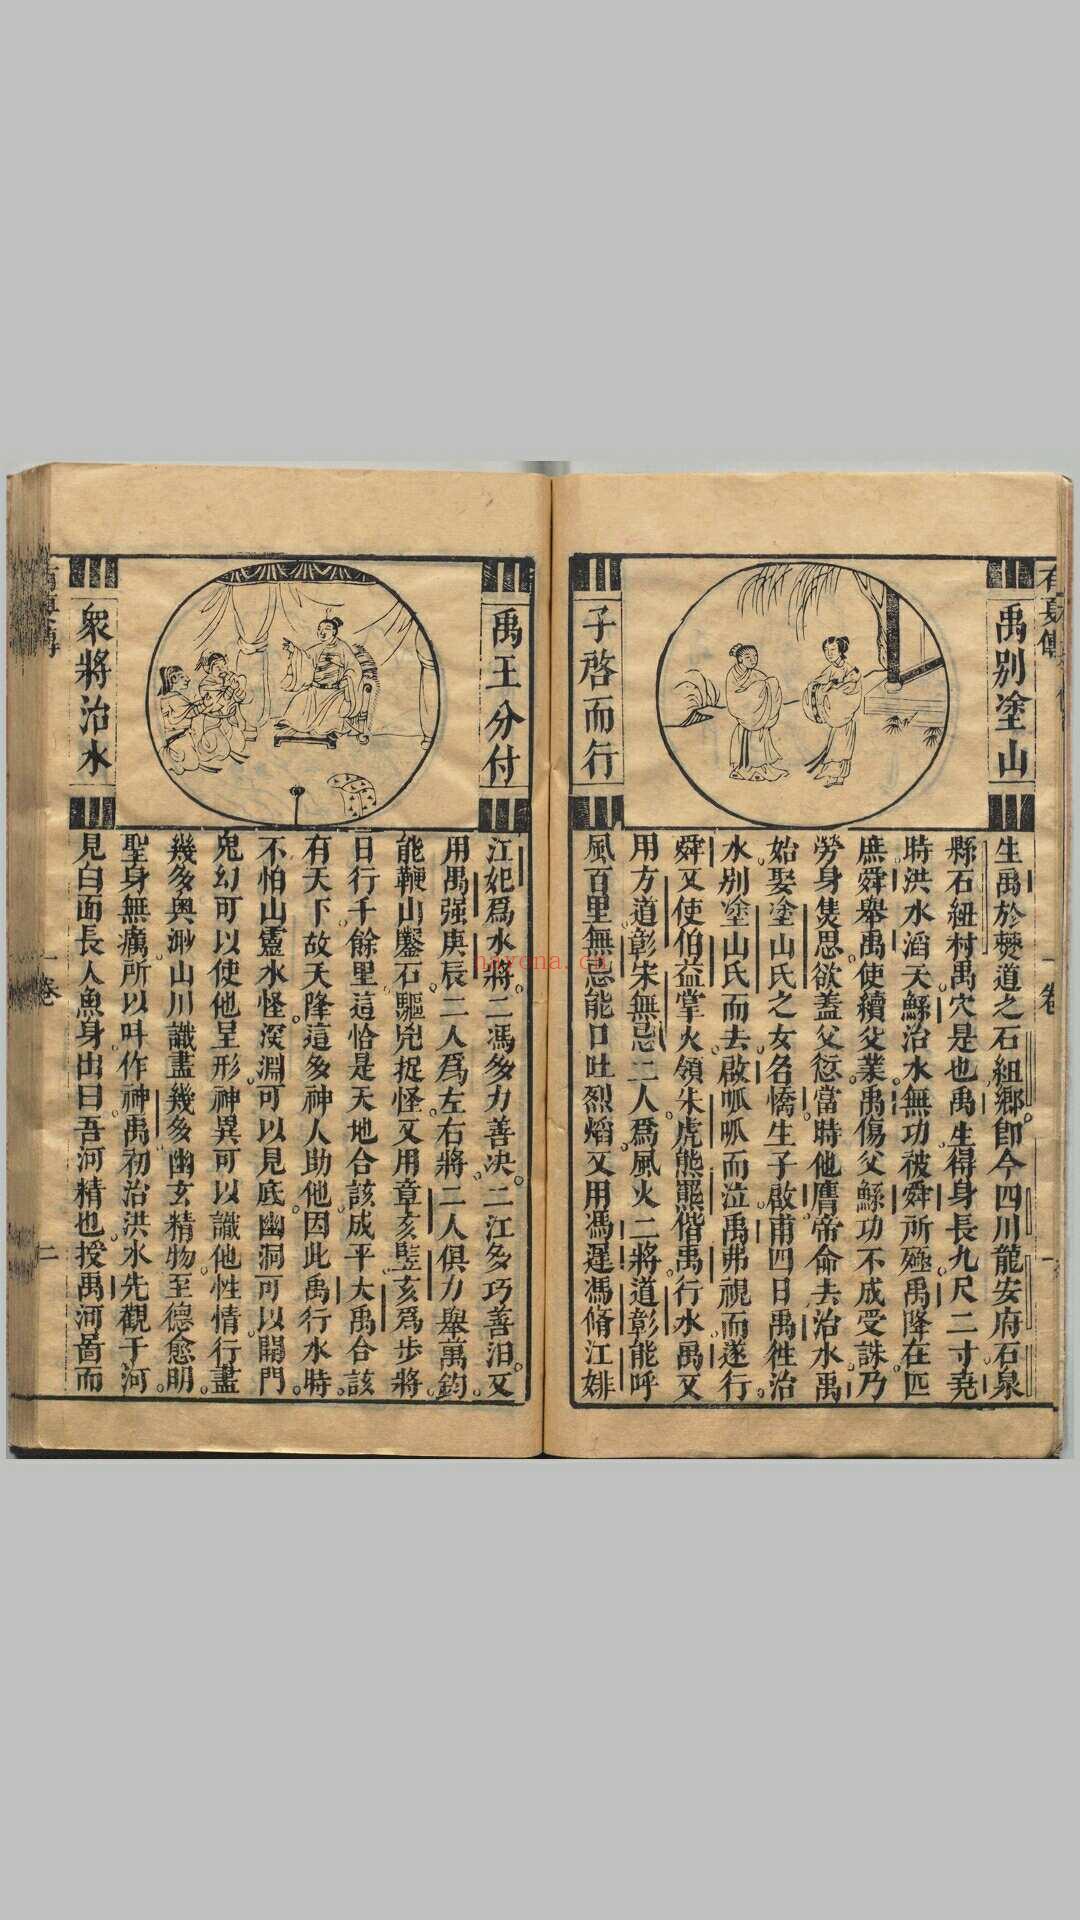 有夏傳
禹別塗山
子啓而行
生禹於僰道之石紐鄉卽今四川龍安府石泉
縣石紐村禹穴是也禹生得身長九尺二寸堯
時洪水滔天鯀治水無功被舜所殛禹降在匹
庶舜舉禹使續父業禹傷父鯀功不成受誅乃
勞身焦思欲蓋父愆當時他膺帝命去治水禹
始娶塗山氏之女名憍生子啟甫四日禹徃治
水別塗山氏而去啟呱呱而泣禹弗視而遂行
舜又使伯益掌火領朱虎熊羆偕禹行水禹又
用方道彰宋無忌二人爲風火二將道彰能呼
風百里無忌能口吐烈焰又用馮遲馮脩江婔
一卷
禹王分付
眾將治水
江妃爲水將二馮多力善决二江多巧善汨又
用禺强庚辰二人爲左右將二人俱力舉萬鈞
能鞭山鑿石驅兇捉怪又用章亥豎亥爲步將
日行千餘里這恰是天地合該成平大禹合該
有天下故天降這多神人助他因此禹行水時
不怕山靈水怪深淵可以見底幽洞可以開門
鬼幻可以使他呈形神異可以識他性情行盡
幾多輿渺山川識盡幾多幽玄精物至德愈明
聖身無癘所以呌作神禹初治洪水先觀于河
見白面長人魚身出曰吾河精也授禹河啚而
一卷
二
hayona.cn